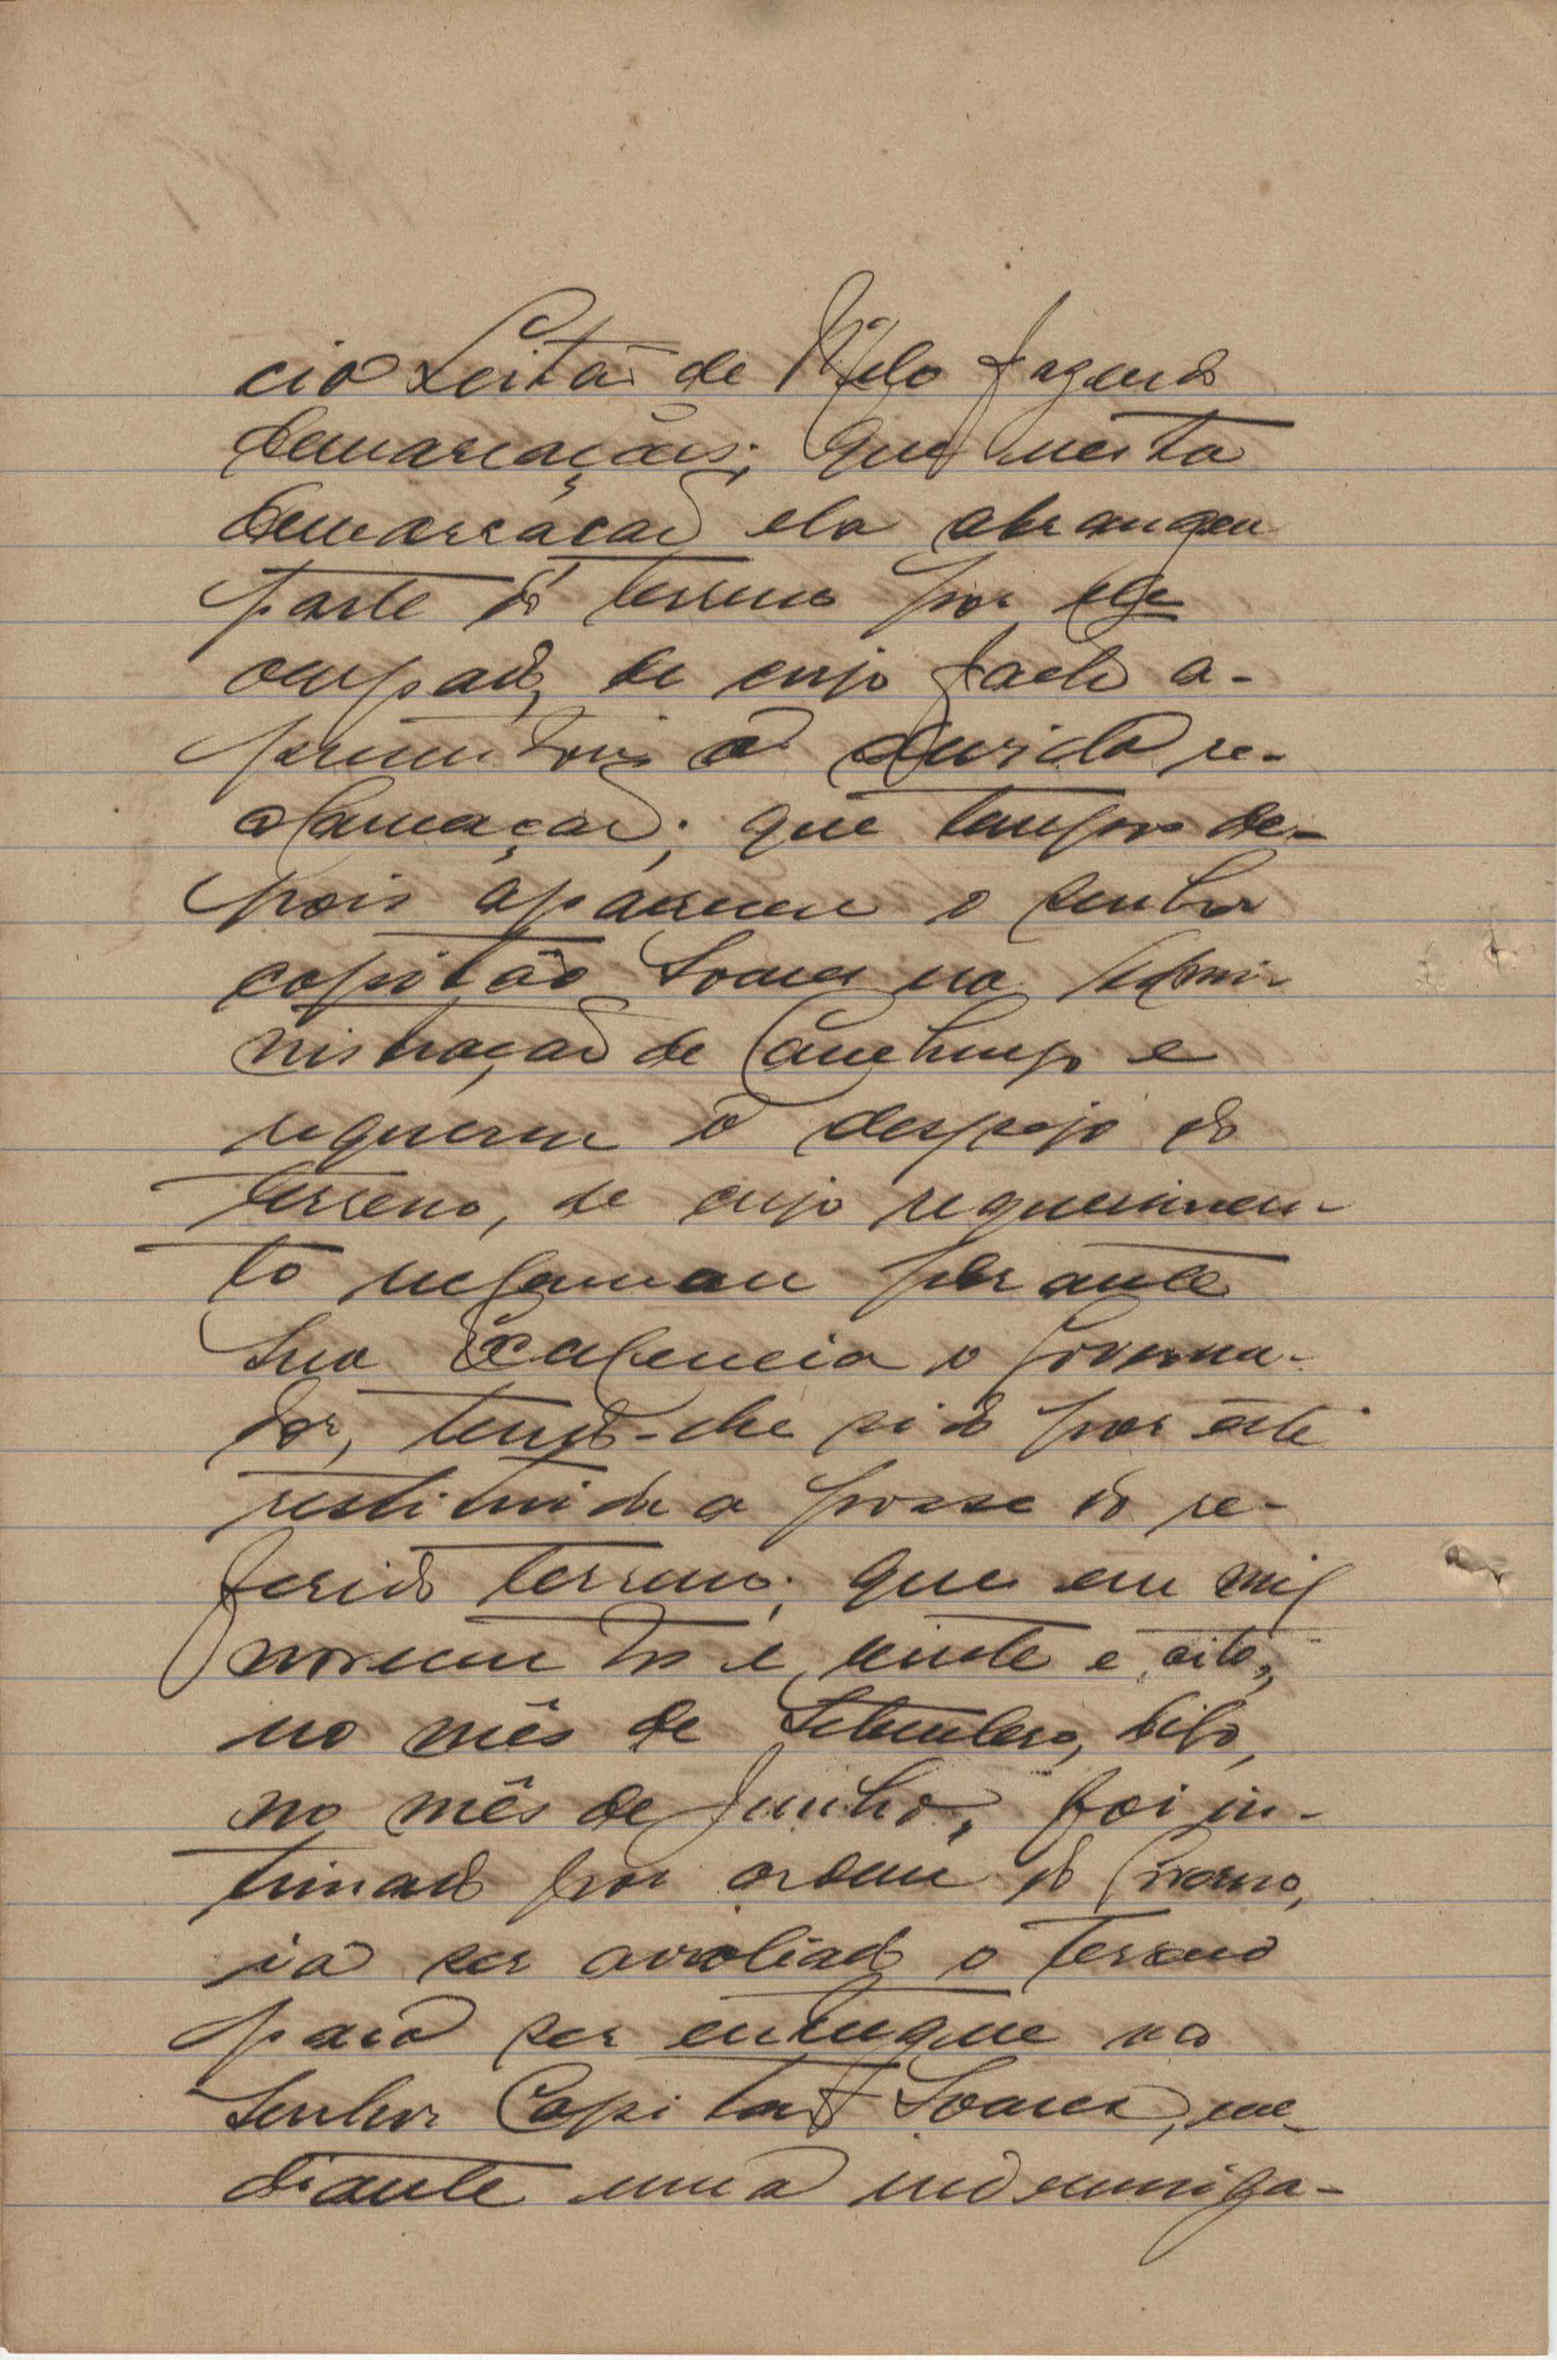 cio Leitão de Melo fazendo
demarcações; que nesta
demarcação ela abrangeu
parte do terreno por ele
ocupado, de cujo facto a-
presentou a devida re-
clamação; que tempos de-
pois apareceu o senhor
capitão Soares na Admi-
nistração de Canchungo e
requereu o despejo do
terreno, de cujo requerimen-
to reclamou perante
Sua Excelencia o Governa-
dor, tendo-lhe sido por êste
restituida a posse do re-
ferido terreno; que em mil
novecentos e vinte e oito,
no mês de Setembro, digo,
no mês de Junho, foi in-
timado por ordem do Governo,
ia ser avaliado o terreno
para ser entregue ao
Senhor Capitão Soares, me-
diante uma indemniza-